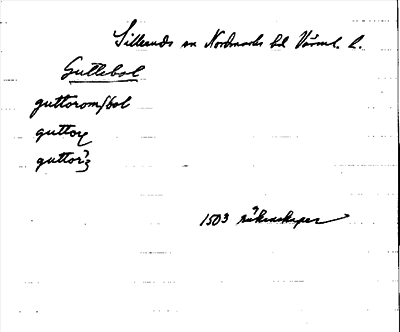 Silleruds sn Nordmarks hd Värml. l.
Guttebol
guttorom/bol
guttor
guttorʒ
1503 räkenskaper